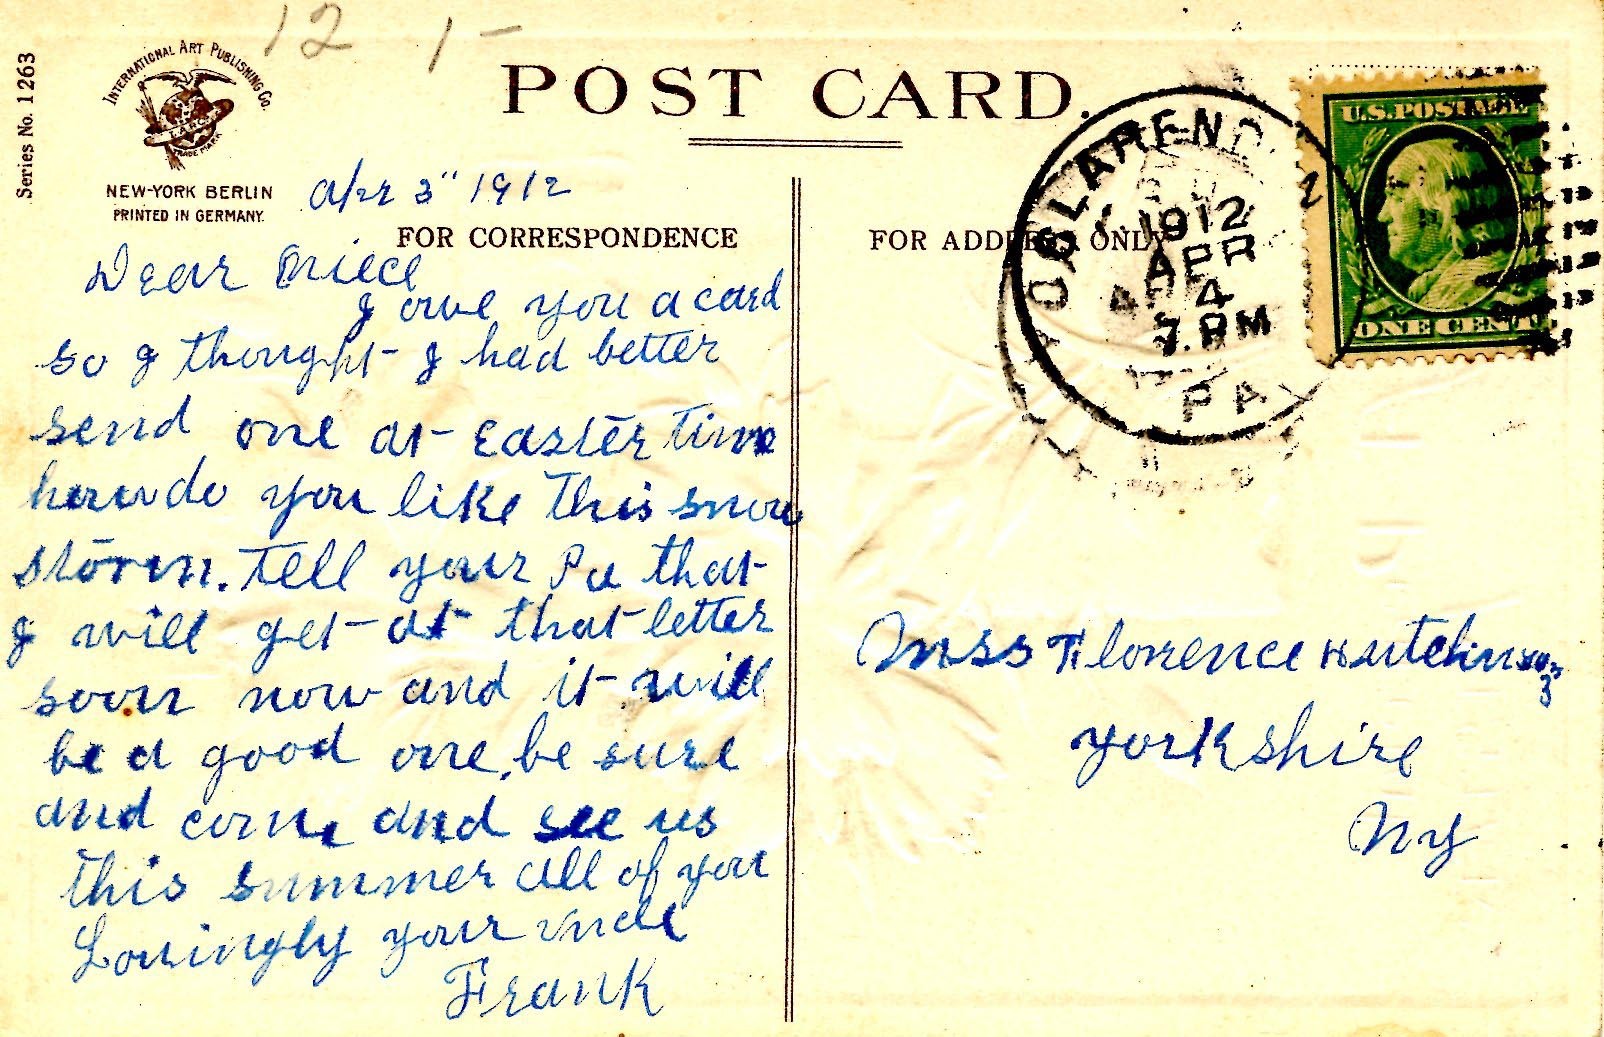 12 1-
Series No. 1263
INTERNATIONAL ART PUBLISHING CO.
TRADE MARK
NEW-YORK BERLIN
PRINTED IN GERMANY.
POST CARD.
FOR CORRESPONDENCE
FOR ADDRESS ONLY
U.S. POSTAGE
ONE CENT
CLARENDON
1912
APR
4
7 PM
PA
Apr 3" 1912
Dear Niece
I owe you a card
so I thought I had better
send one at Easter Time
how do you like this snow
storm. Tell your Pa that
I will get at that letter
soon now and it will
be a good one. be sure
and come and see us
this summer all of you
Lovingly your uncle
Frank
Miss Florence Hutchinson
Yorkshire
NY